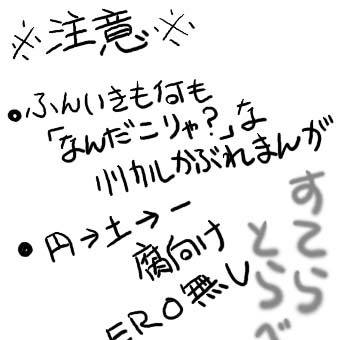 ※注意※
●ふんいきも何も
「なんだこりゃ?」な
リリカルかぶれまんが
●円→土→一
腐向け
ERO無し
すてら
とらべ